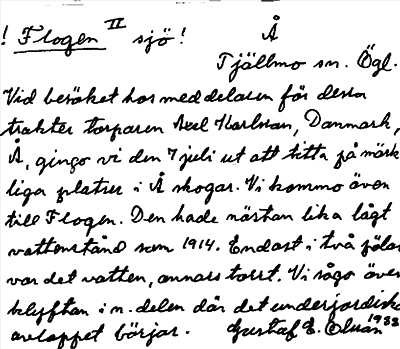 ! Flogen II sjö! Å
Tjällmo sn. Ögl.
Vid besöket hos meddelaren för dessa
trakter torparen Axel Karlsson, Danmark,
Å, gingo vi den 7 juli ut att titta på märk-
liga platser i Å skogar. Vi kommo även
till Flogen. Den hade nästan lika lågt
vattenstånd som 1914. Endast i två hålor
var det vatten, annars torrt. Vi sågo även
klyftan i n. delen där det underjordiska
avloppet börjar. Gustaf E. Olsson 1933